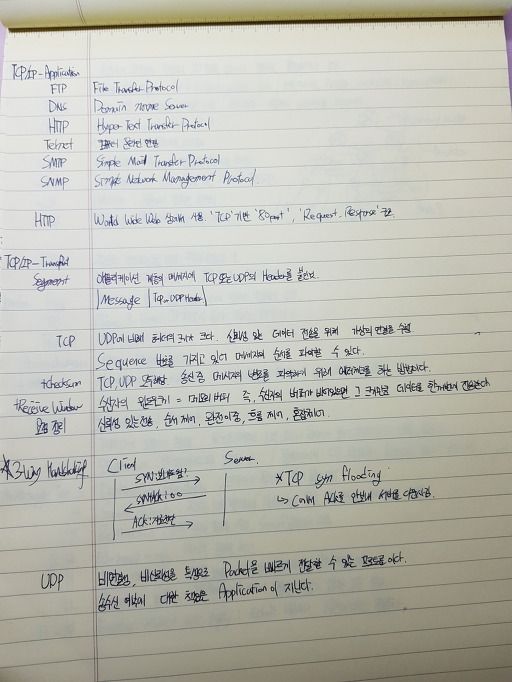 TCP/IP-Application
FTP File Transfer Protocol
DNS Domain name Server
HTTP Hyper Text Transfer Protocol
Telnet 컴퓨터 온라인 연결
SMTP Simple Mail Transfer Protocol
SNMP Simple Network Management Protocol.
HTTP World Wide Web 상에서 사용. 'TCP' 기반 '80port', 'Request. Response' 구조
TCP/IP-Transport
Segment 어플리케이션 계층의 메세지에 TCP 또는 UDP의 Header를 붙인것
Message TCP or UDP Header
TCP UDP에 비해 헤더의 크기가 크다. 신뢰성 있는 데이터 전송을 위해 가상의 연결을 수행
Sequence 번호를 가지고 있어 메세지의 순서를 파악할 수 있다.
+checksum TCP, UDP 모두해당. 송신 중 메시지의 변조를 파악하기 위해 에러체크를 하는 방법이다.
+Receive Window 수신자의 윈도우크기 = 메모리 버퍼 즉, 수신자의 버퍼가 비어있으면 그 크기만큼 데이터를 한꺼번에 전송한다
요점 정리 신뢰성 있는 전송, 순서 제어, 완전이중, 흐름 제어, 혼잡제어.
3-Way Handshaking Client Server.
SYN:
SYN/Ack: oo
Ack:
* TCP syn flooding
↳ Ack를 안보내 서버를 다운시킴.
UDP 비연결성, 비신뢰성을 특징으로 Packet을 빠르게 전달할 수 있는 프로토콜이다.
송수신 여부에 대한 책임은 Application이 지닌다.